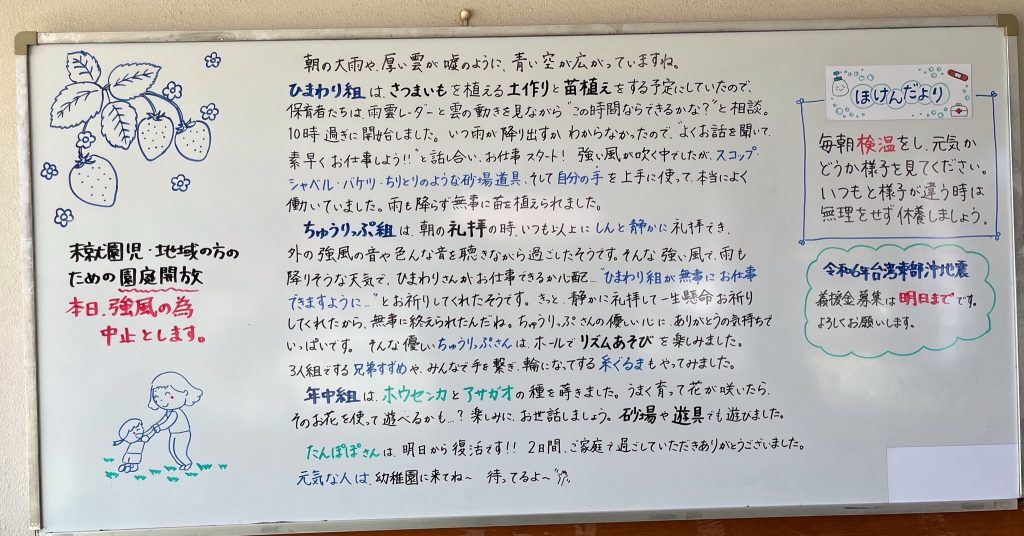 朝の大雨や、厚い雲が嘘のように、青い空が広がっていますね。
ひまわり組は、さつまいもを植える土作りと苗植えをする予定にしていたので、
保育者たちは、雨雲レーダーと雲の動きを見ながら“この時間ならできるかな?”と相談。
10時過ぎに開始しました。いつ雨が降り出すかわからなかったので、“よくお話を聞いて、
素早くお仕事しよう!!”と話し合い、お仕事スタート! 強い風が吹く中でしたが、スコップ・
シャベル・バケツ・ちりとりのような砂場道具、そして自分の手を上手に使って、本当によく
働いていました。雨も降らず無事に苗を植えられました。
ちゅうりっぷ組は、朝の礼拝の時、いつも以上にしんと静かに礼拝でき、
外の強風の音や色んな音を聴きながら過ごしたそうです。そんな強い風で、雨も
降りそうな天気で、ひまわりさんがお仕事できるか心配…“ひまわり組が無事にお仕事
できますように…”とお祈りしてくれたそうです。きっと、静かに礼拝して一生懸命お祈り
してくれたから、無事に終えられたんだね。ちゅうりっぷさんの優しい心に、ありがとうの気持ちで
いっぱいです。そんな優しいちゅうりっぷさんは、ホールでリズムあそびを楽しみました。
3人組でする兄弟すずめや、みんなで手を繋ぎ、輪になってする糸ぐるまもやってみました。
年中組は、ホウセンカとアサガオの種を蒔きました。うまく育って花が咲いたら、
そのお花を使って遊べるかも…?楽しみに、お世話しましょう。砂場や遊具でも遊びました。
たんぽぽさんは、明日から復活です!! 2日間、ご家庭で過ごしていただきありがとうございました。
元気な人は、幼稚園に来てね〜 待ってるよ〜
未就園児・地域の方の
ための園庭開放
本日、強風の為
中止とします。
ほけんだより
毎朝検温をし、元気か
どうか様子を見てください。
いつもと様子が違う時は
無理をせず休養しましょう。
令和6年台湾東部沖地震
義援金募集は明日までです。
よろしくお願いします。